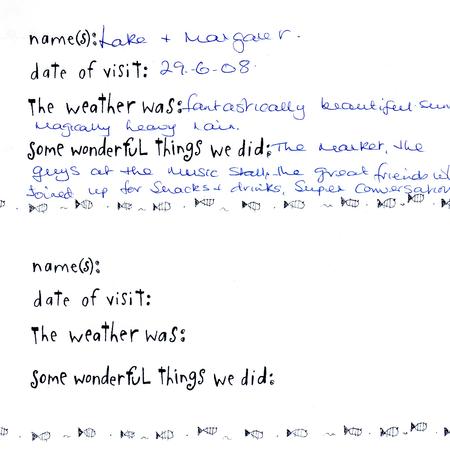 name(s): Lake + Margaret.
date of visit: 29-6-08.
The weather was: fantastically beautiful sun
magically heavy rain.
Some wonderful things we did: The market, the
guys at the music stall, the great friends
joined up for snacks + drinks, Super Conversation
name(s):
date of visit:
The weather was:
Some wonderful things we did: